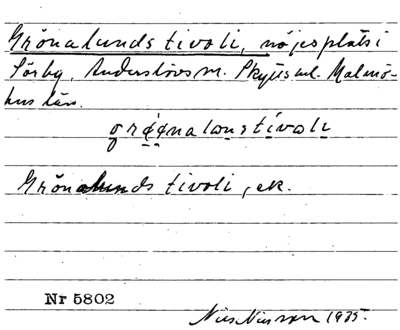 Grönalunds tivoli, nöjesplats i
Sörby, Anderslövs sn. Skytts hd. Malmö-
hus län.
grøønalonstivoli
Grönalunds tivoli, ek.
Nr 5802
Nils Nilsson 1935.